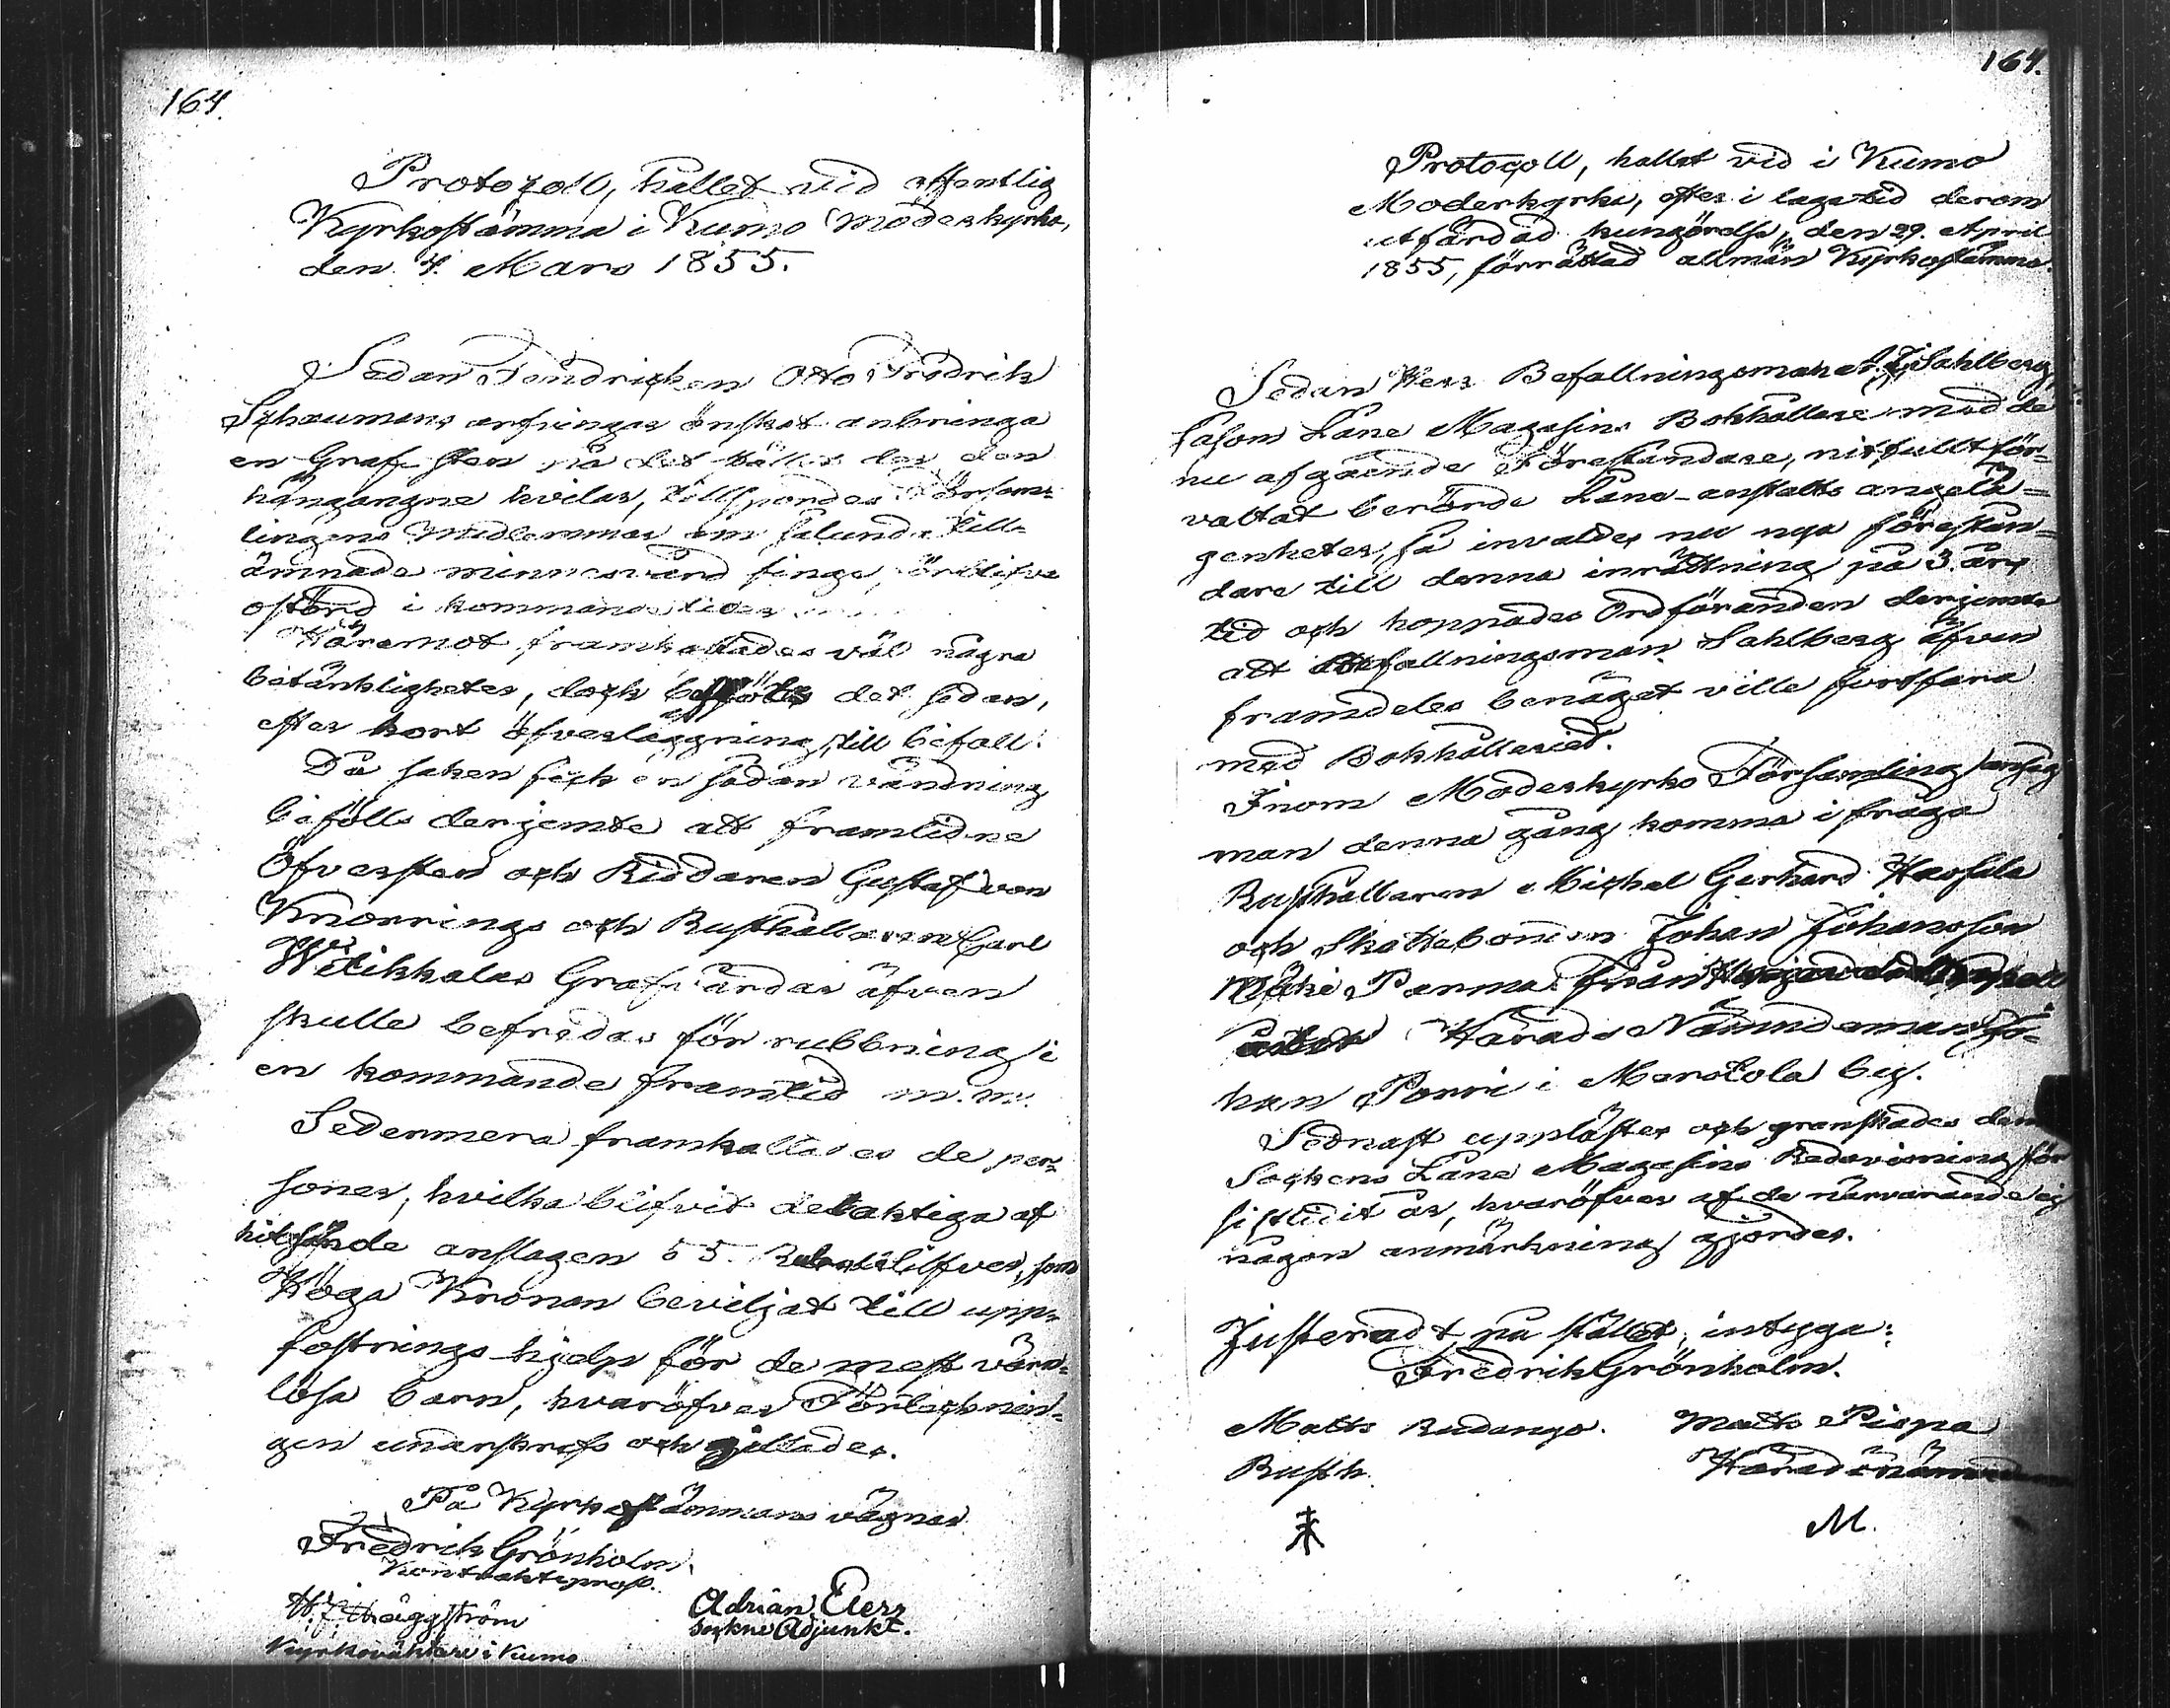 164.
Protocoll, hållet vid offentlig
Kyrkostämma i Kumo Moderkyrka,
den 4. Mars 1855.
Sedan Fendricken Otto Fredrik
Schaumans arfvingar önskat anbringa
en Graf sten på det stället der den
hängangne hvilar, tillspordes Försam-
lingens Medlemmar om salunda till-
ämnade minnesvård finge förblifva
ostörd i kommande tider
Häremot framkallades väl några
betänkligheter, dock det sedan,
efter kort öfverläggning, till bifall.
Då saken fick en sådan vändning
bifölls derjemte att framlidne
Öfversten och Riddaren Gustaf von
Knorrings och Rusthållaren Carl
Witikkalas Grafvårdar äfven
skulle befredas för rubbning i
en kommande framtid m.m.
Sedermera framkallades de per-
soner, hvilka blifvit delaktiga af
hitsände anslagen 55. Rubel silfver, som
Höga Kronan beviljat till upp-
fostrings hjelp för de mest värn-
lösa barn, hvaröfver Förtecknin-
gen underskrefs och gillades.
På Kyrkostämmans vägnar
Fredrik Grönholm.
Kontraktsprost.
H. J. Häggström
Kyrkoväktare i Kumo
Adrian
Sockne Adjunkt.
164.
Protocoll, hallet vid i Kumo
Moderkyrka, efter i laga tid derom
utfärdad kungörelse, den 29. April
1855, förrättad allmän Kyrkostämma.
Sedan Herr Befallningsman Sahlberg,
såsom Låne Magasins Bokhållare med de
nu afgående Föreståndare, nitfullt för-
valtat berörde Låne-anstalts angelä-
genheter, så invaldes nu nya förestån-
dare till denna inrättning på 3. års
tid och hoppades Ordföranden derjemte
att Befallningsman Sahlberg äfven
framdeles benäget ville fortfara
med Bokhålleriet.
Inom Moderkyrko Församling ansåg
man denna gång komma i fråga
Rusthållaren Michel Gerhard Haofala
och Skattebonden Johan Johansson
Mäki Parma från
Härads Nämndeman Jo-
han Porri i Merstola by.
Sednast upplästes och granskades den
Sockens Låne Magasins Redovisning för
sistlidit år, hvaröfver af de närvarande ej
någon anmärkning gjordes.
Justeradt på stället, intyga:
Fredrik Grönholm.
Matts Rudanko. Matts Piopa
Rusth. Häradsnämnd
M.